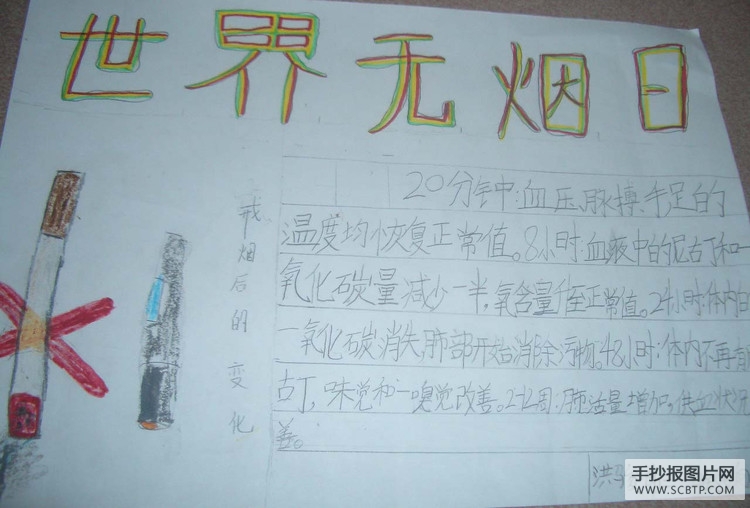 世界无烟日
戒烟后的变化
20分钟:血压、脉搏、手足的
温度均恢复正常值。8小时:血液中的尼古丁和一
氧化碳量减少一半,氧含量升至正常值。24小时:体内
一氧化碳消失,肺部开始消除污物。48小时:体内不再有
古丁,味觉和嗅觉改善。2-12周:肺活量增加,供血状
善。
洪
手抄报图片网
WWW.SCBTP.COM